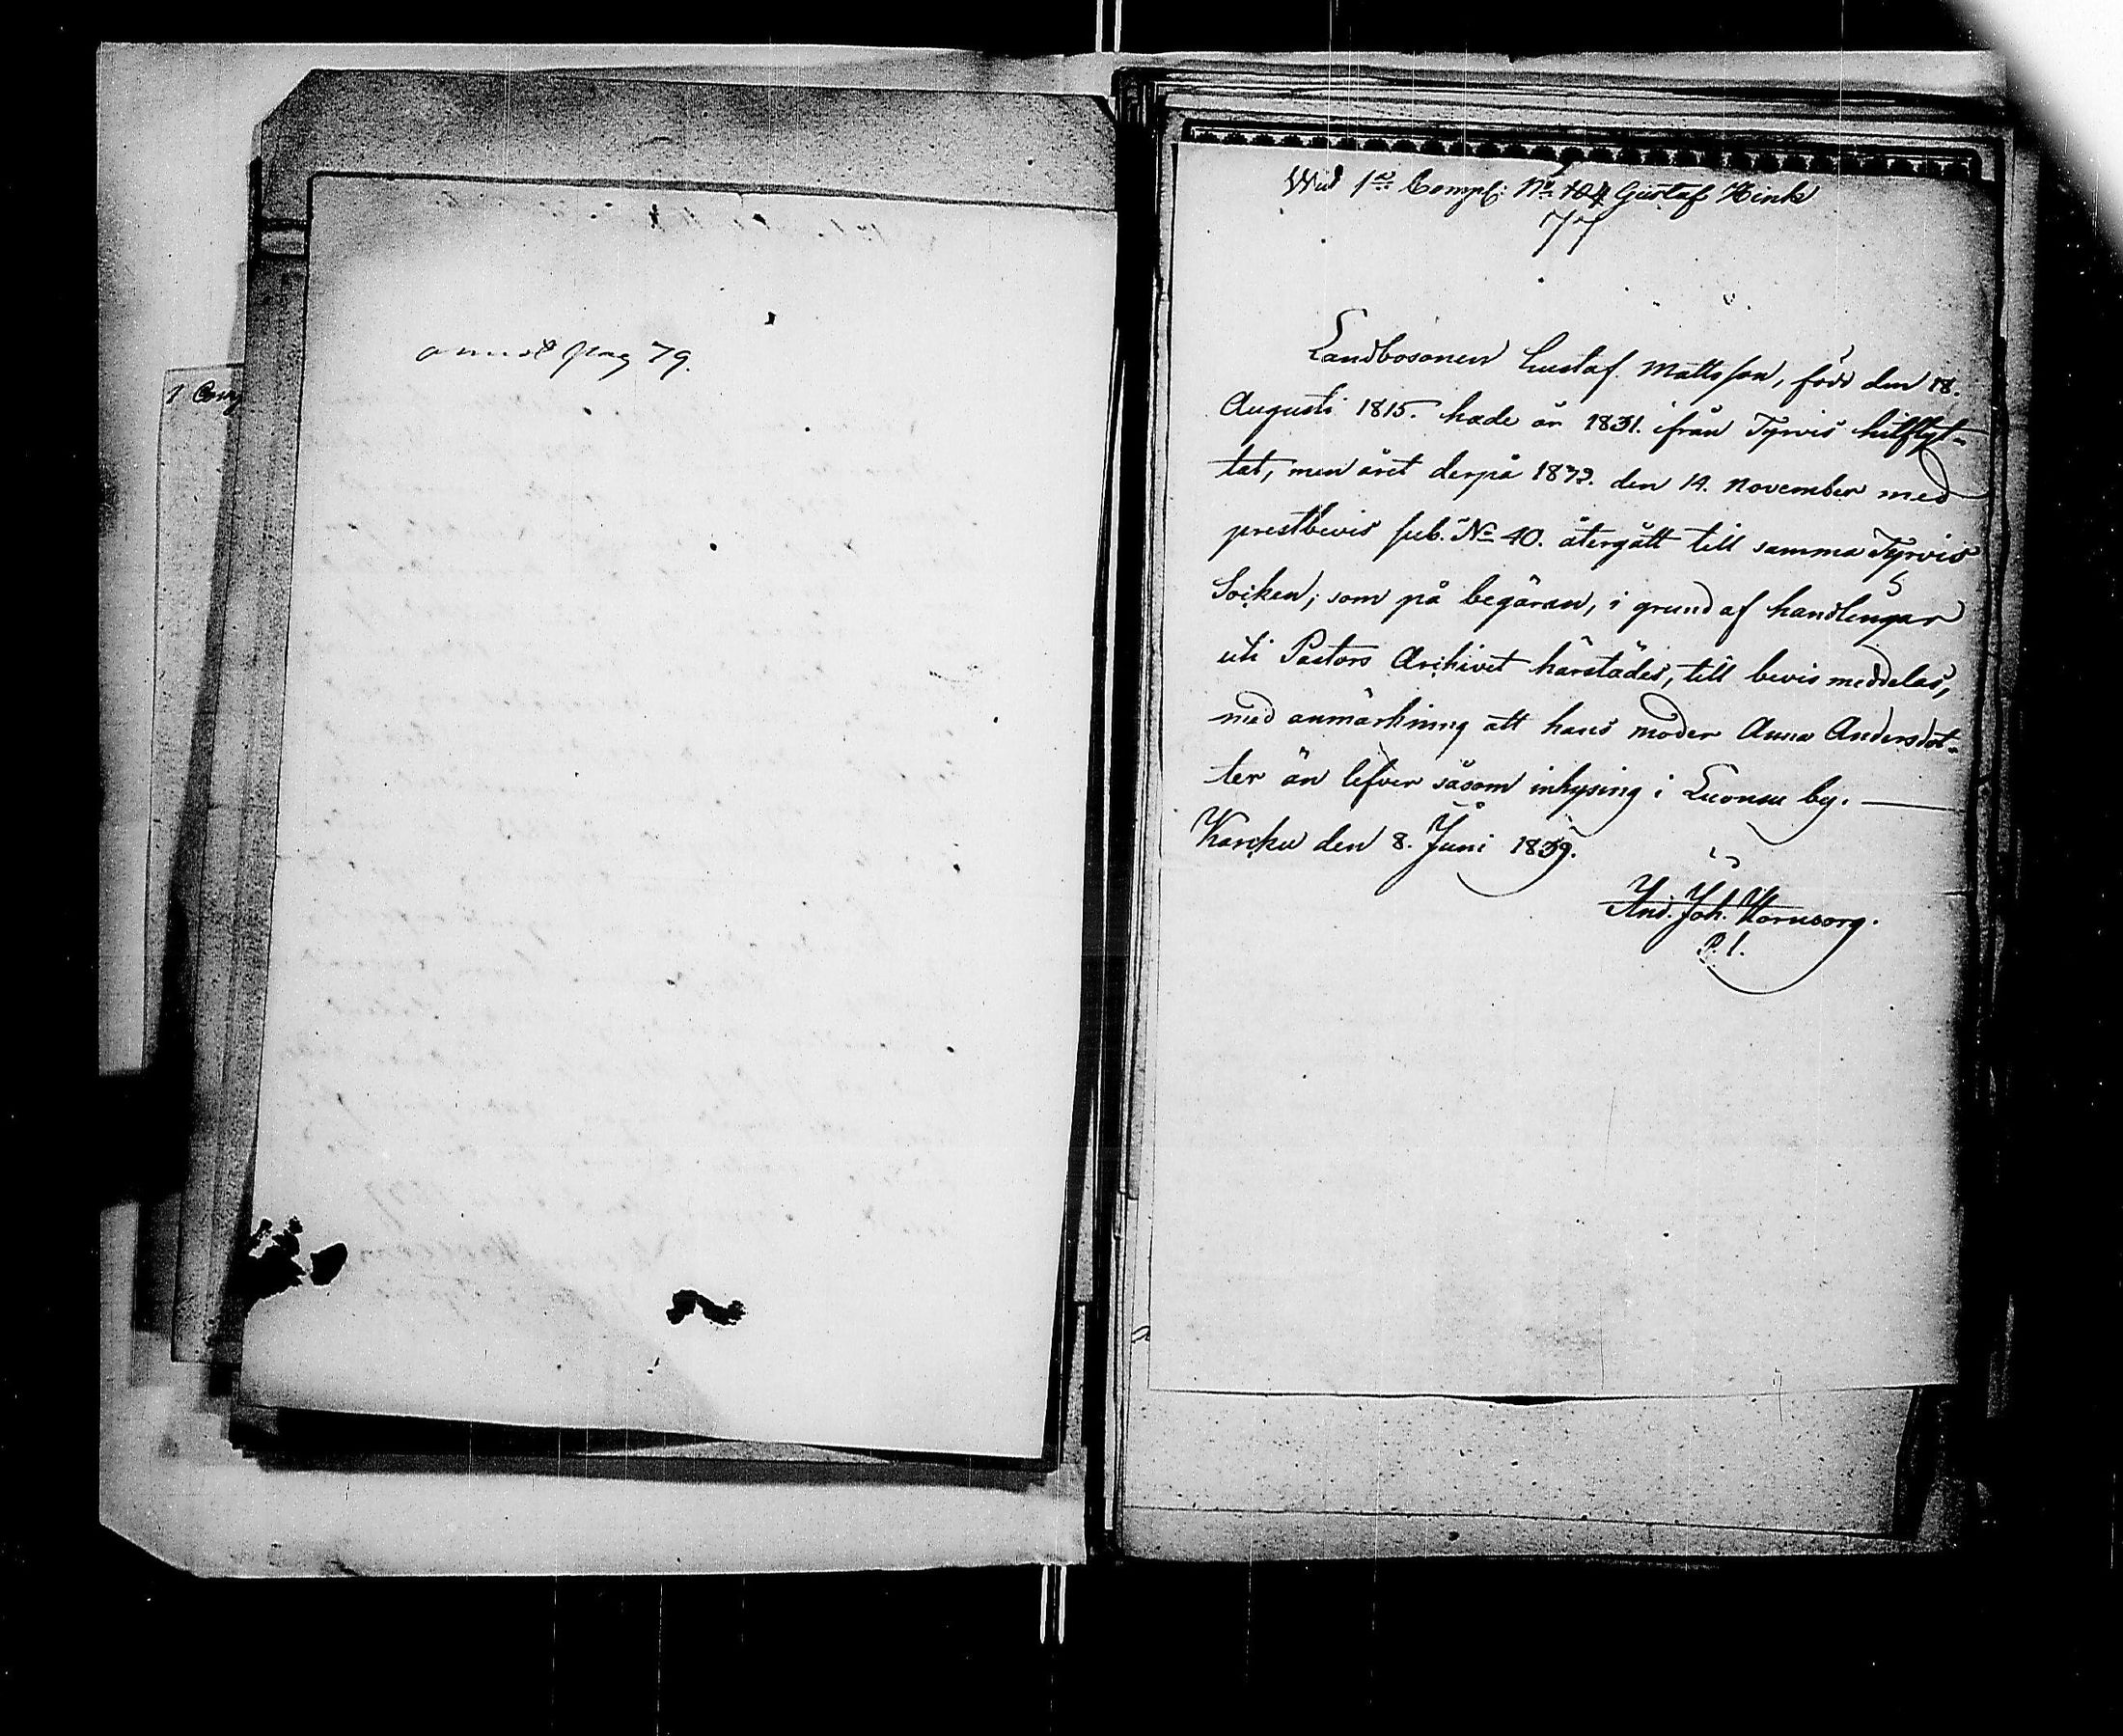 1 Comp
pag 79.
Wid 1ª Comp: No 104 Gustaf Hink
77
Landbosonen Gustaf Mattsson, född den 18.
Augusti 1815. hade år 1831. från Tyrvis hitflyt-
tat, men året derpå 1832. den 14. November med
prestbevis sub. No 40. återgått till samma Tyrvis
Socken; som på begäran, i grund af handlingar
uti Pastors Archivet härstädes, till bevis meddelas,
med anmärkning att hans moder Anna Andersdot-
ter än lefver såsom inhysing i Luonsu by. —
Karcku den 8. Juni 1839.
And. Joh. Hornborg.
P. l.